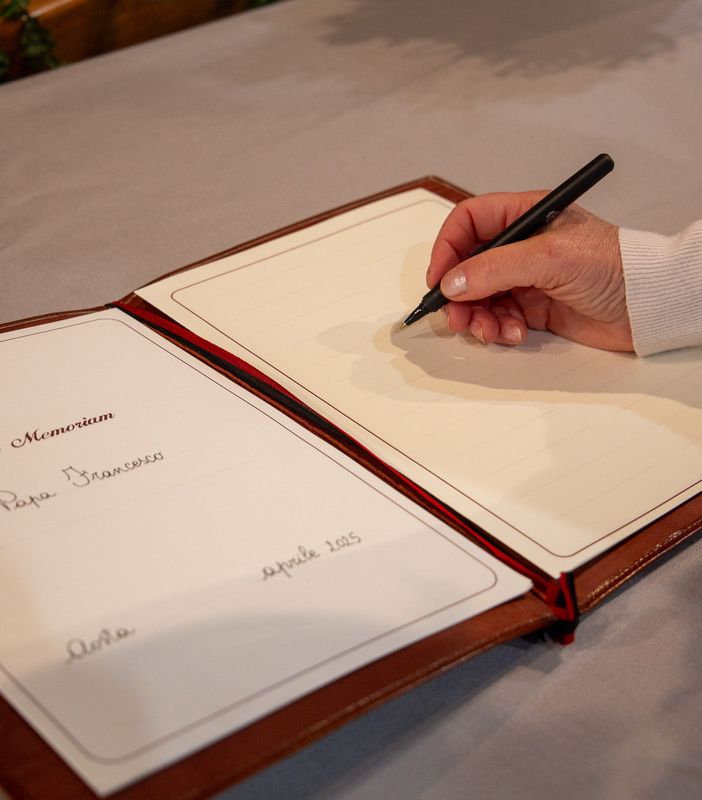 Memoriam
Papa Francesco
aprile 2025
Aosta